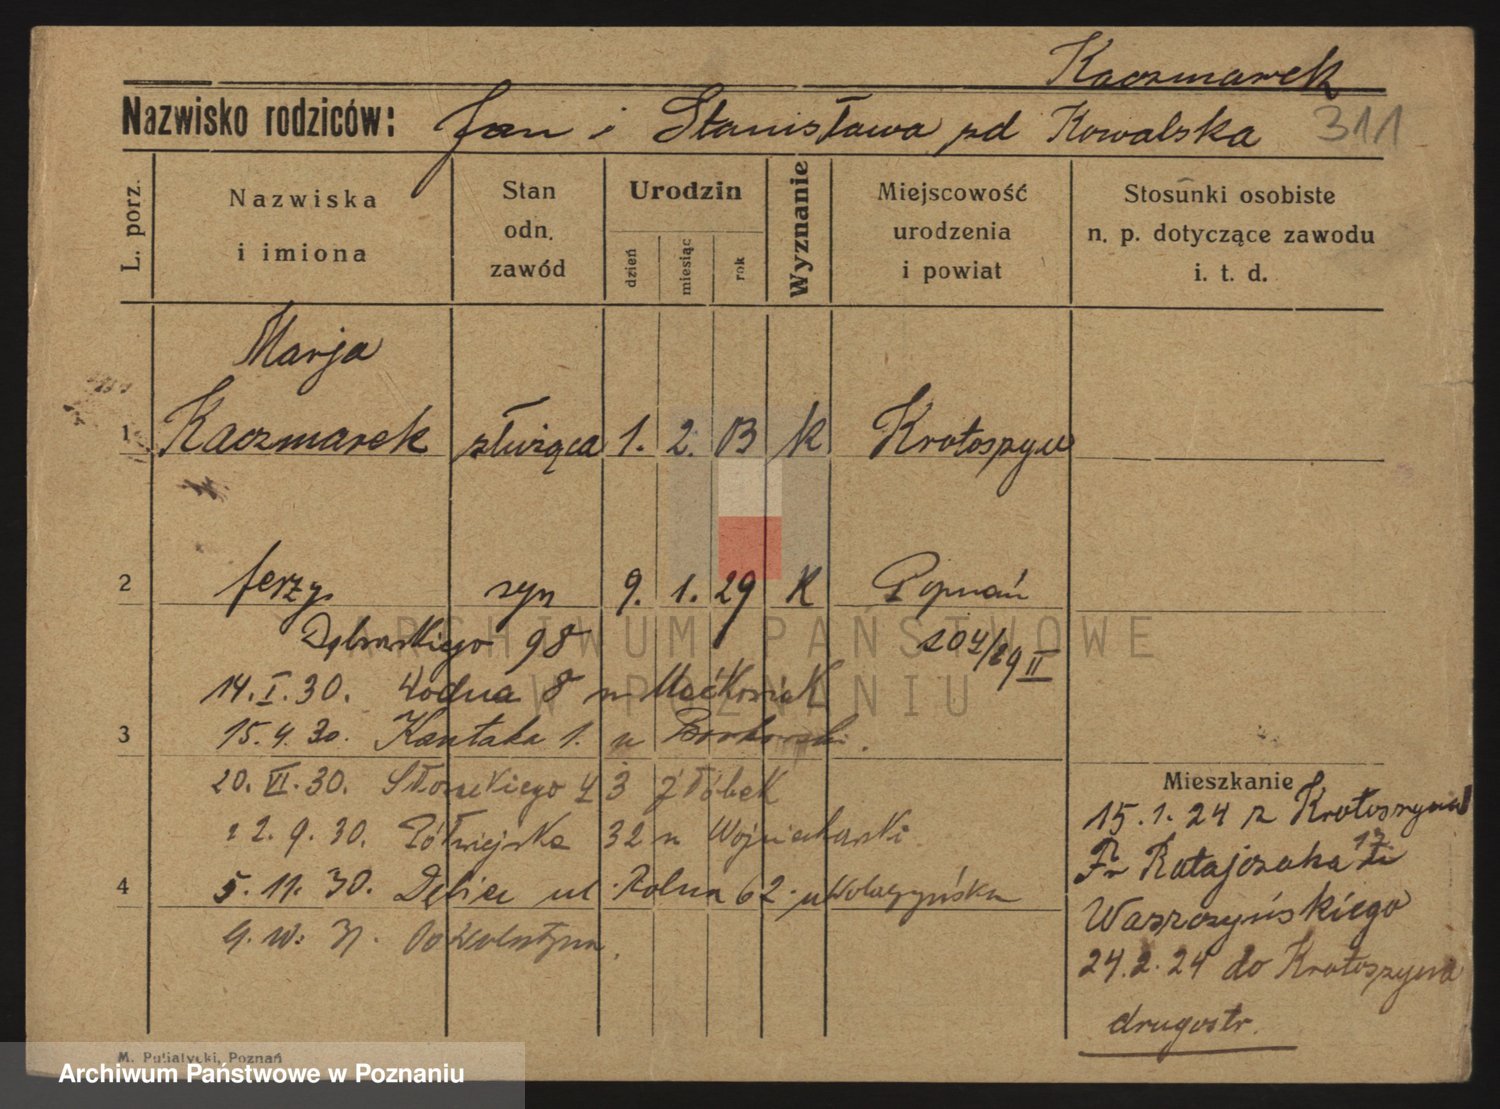 Kaczmarek
Nazwisko rodziców: Jan i Stanisława zd Kowalska 311
L. porz.
Nazwiska i imiona
Stan odn. zawód
Urodzin
dzień miesiąc rok
Wyznanie
Miejscowość urodzenia i powiat
Stosunki osobiste n. p. dotyczące zawodu i. t. d.
Marja
1 Kaczmarek służąca 1. 2. 03 K Krotoszyn
2 Jerzy syn 9. 1. 29 K Poznań
Dąbrowskiego 98 204/29 II
14. I. 30. Wodna 8 u Maćkowiak
3 15. 4. 30. Kantaka 1. u
20. VI. 30. 43 żłóbek
22. 9. 30. Półwiejska 32 u
4 5. 11. 30. Dębiec ul. Rolna 62
Mieszkanie
15. 1. 24 z Krotoszyna
Fr Ratajczaka
Waszczyńskiego
24. 2. 24 do Krotoszyna
drugostr.
M. Putiatycki, Poznań
ARCHIWUM PAŃSTWOWE
W POZNANIU
Archiwum Państwowe w Poznaniu